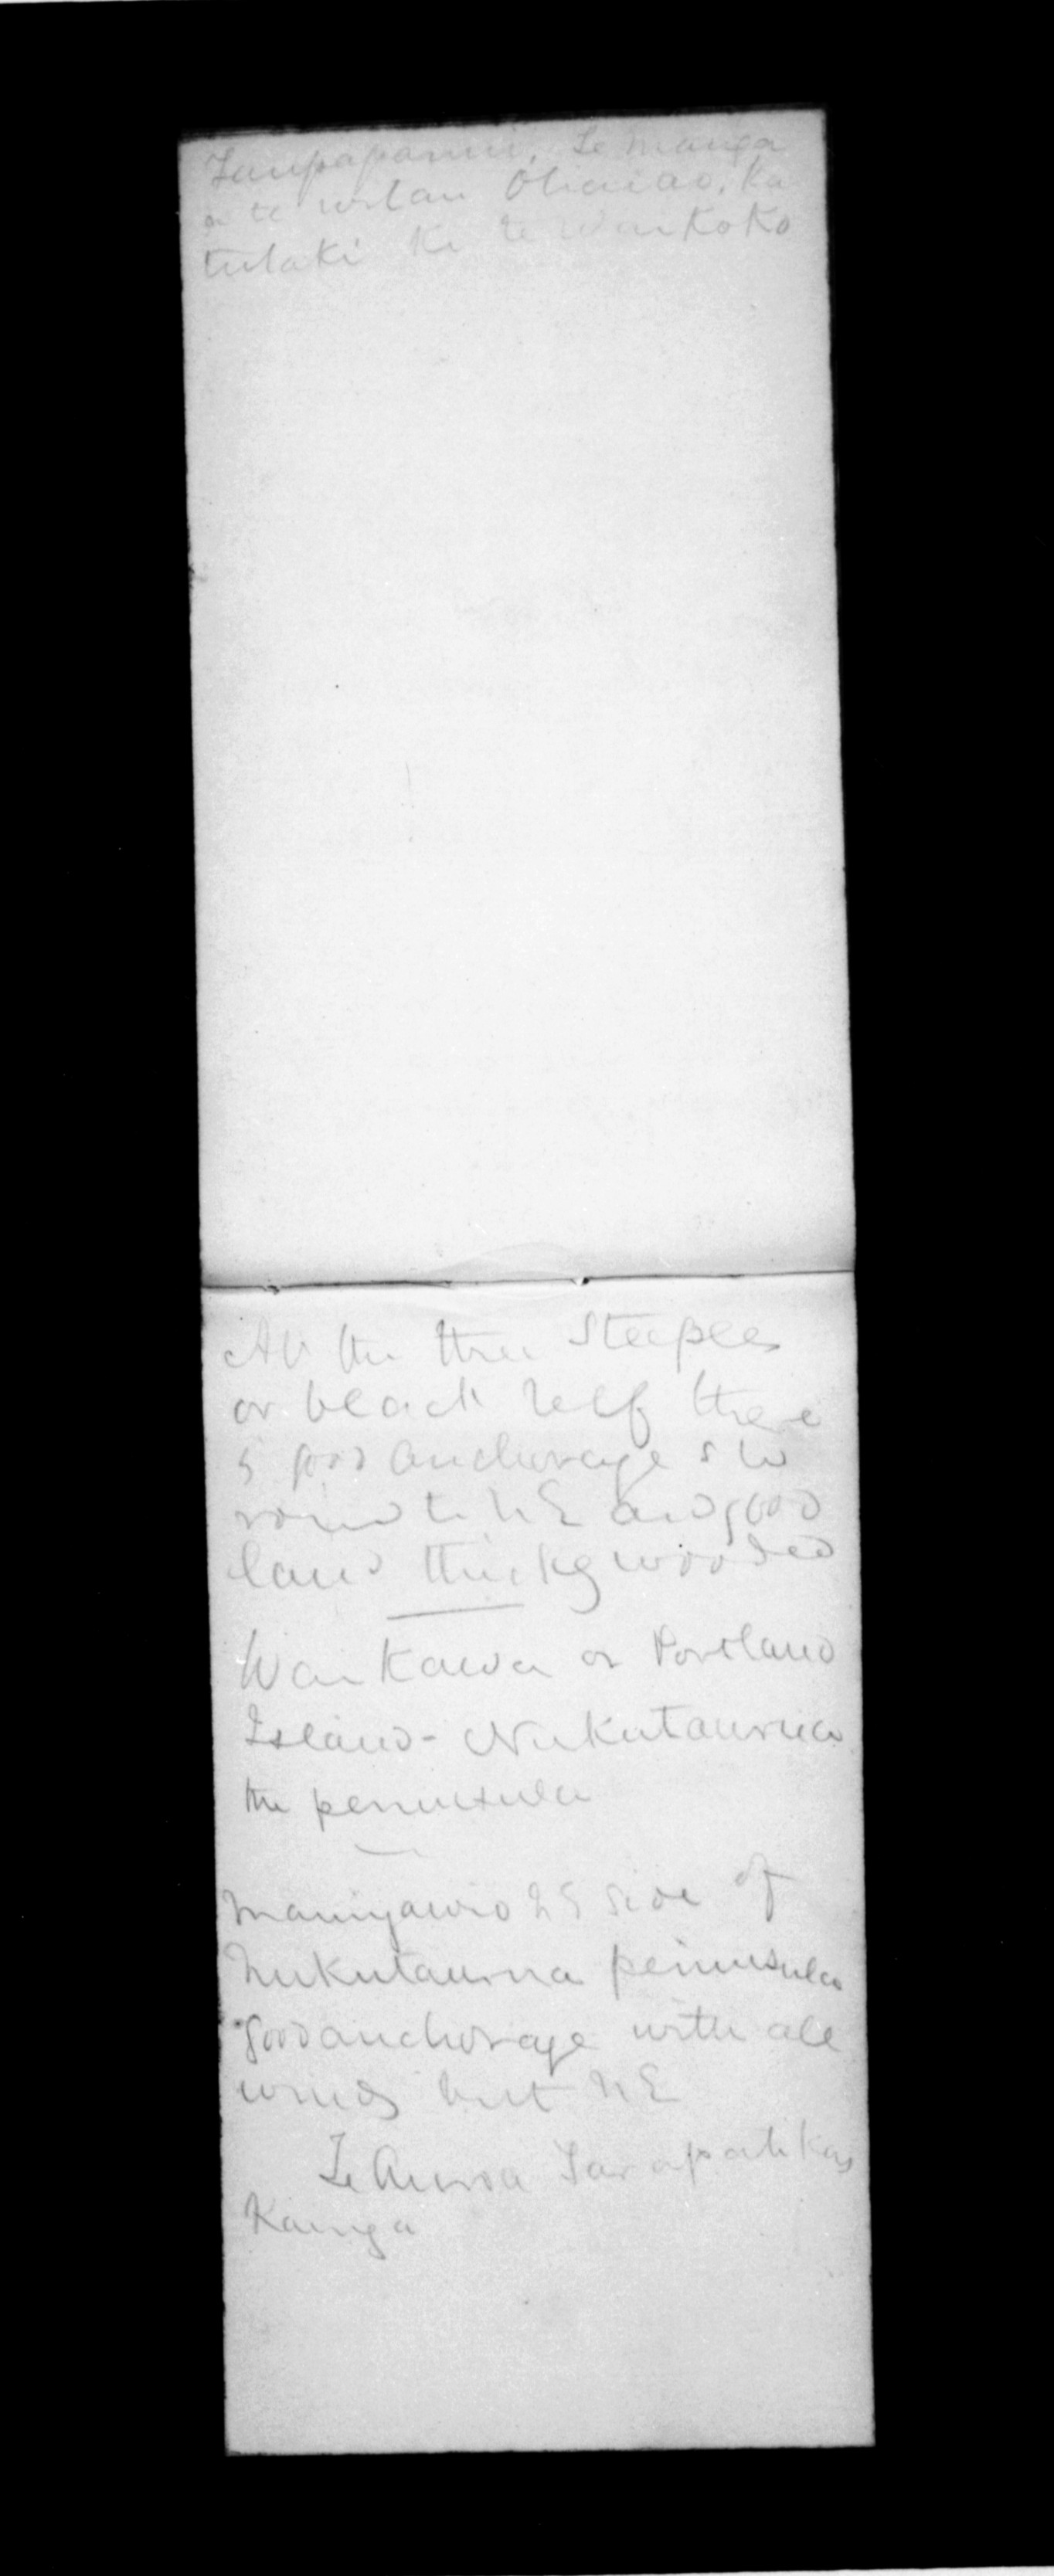 Te manga
a te
tutaki ki te Waikoko
At the three Steeples
or black reef there
is good anchorage S W
round to N E and good
land thickly wooded
Waikawa or Portland
Island - Nukutaurua
the peninsula
side of
Nukutaurua peninsula
good anchorage with all
winds but N E
Kainga